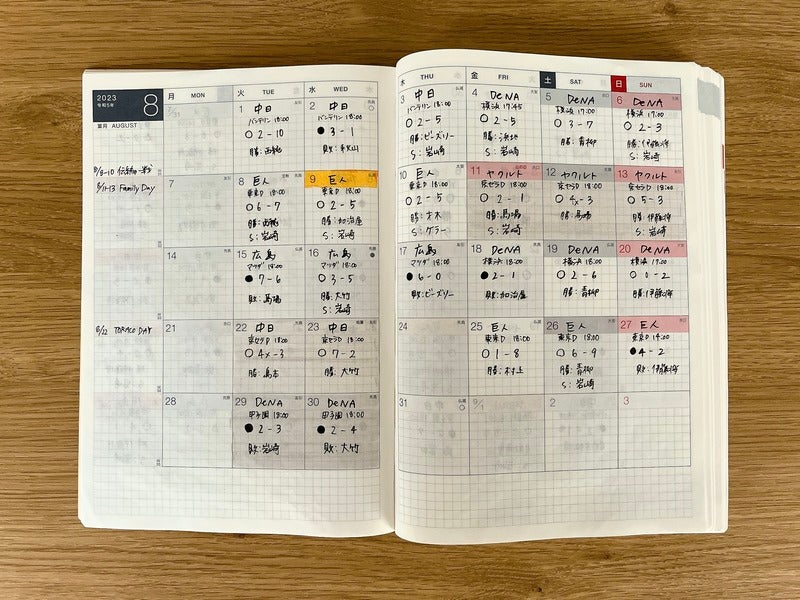 2023
令和5年
8
葉月 AUGUST
月 MON
火 TUE
水 WED
木 THU
金 FRI
土 SAT
日 SUN
7/31
1 中日
バンテリン 18:00
○ 2-10
勝:西純
2 中日
バンテリン 18:00
● 3-1
敗:
3 中日
バンテリン 18:00
○ 2-5
勝:ビーズリー
S:岩崎
4 DeNA
横浜 17:45
○ 2-5
勝:浜地
S:岩崎
5 DeNA
横浜 17:00
○ 3-7
勝:青柳
6 DeNA
横浜 17:00
○ 2-3
勝:伊藤将
S:岩崎
8/8-10 伝統の一戦
8/11-13 Family Day
7
8 巨人
東京D 18:00
○ 6-7
勝:西純
S:岩崎
9 巨人
東京D 18:00
○ 2-5
勝:加治屋
S:岩崎
10 巨人
東京D 18:00
○ 2-5
勝:才木
S:ケラー
11 ヤクルト
京セラD 18:00
○ 2-1
勝:馬場
S:岩崎
12 ヤクルト
京セラD 18:00
○ 4x-3
勝:馬場
13 ヤクルト
京セラD 18:00
○ 5-3
勝:伊藤将
S:岩崎
14
15 広島
マツダ 18:00
● 7-6
敗:馬場
16 広島
マツダ 18:00
○ 3-5
勝:大竹
S:岩崎
17 広島
マツダ 18:00
● 6-0
敗:ビーズリー
18 DeNA
横浜 18:00
● 2-1
敗:加治屋
19 DeNA
横浜 18:00
○ 2-6
勝:青柳
20 DeNA
横浜 17:00
○ 0-2
勝:伊藤将
8/22 TORACO DAY
21
22 中日
京セラD 18:00
○ 4x-3
勝:島本
23 中日
京セラD 18:00
○ 7-2
勝:大竹
24
25 巨人
東京D 18:00
○ 1-8
勝:村上
26 巨人
東京D 18:00
○ 6-9
勝:青柳
S:岩崎
27 巨人
東京D 14:00
● 4-2
敗:伊藤将
28
29 DeNA
甲子園 18:00
● 2-3
敗:岩崎
30 DeNA
甲子園 18:00
● 2-4
敗:大竹
31
9/1
2
3